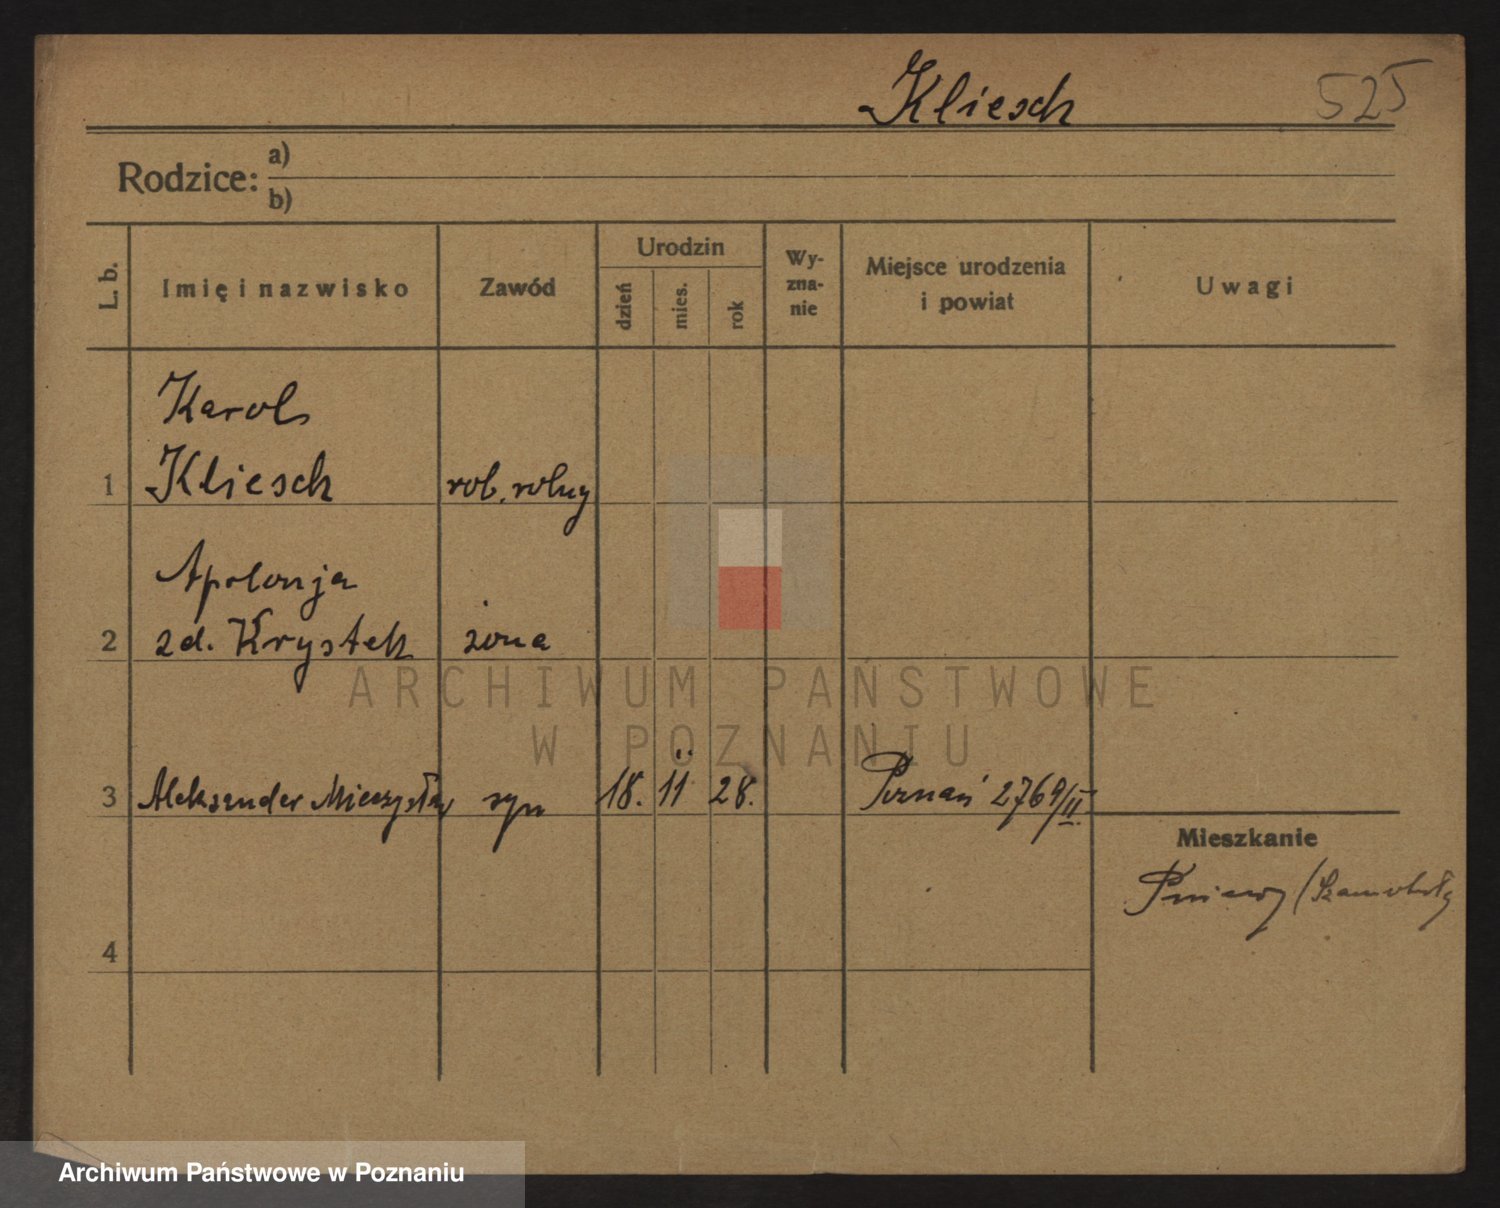 Kliesch 525
Rodzice: a)
b)
L. b. Imię i nazwisko Zawód Urodzin dzień mies. rok Wy-zna-nie Miejsce urodzenia i powiat Uwagi
Karol
1 Kliesch rob. rolny
Apolonja
2 zd. Krystek żona
3 Aleksander Mieczysław syn 18. 11 28. Poznań 2769/II
Mieszkanie
Pniewy (Szamotuły
4
ARCHIWUM PAŃSTWOWE
W POZNANIU
Archiwum Państwowe w Poznaniu